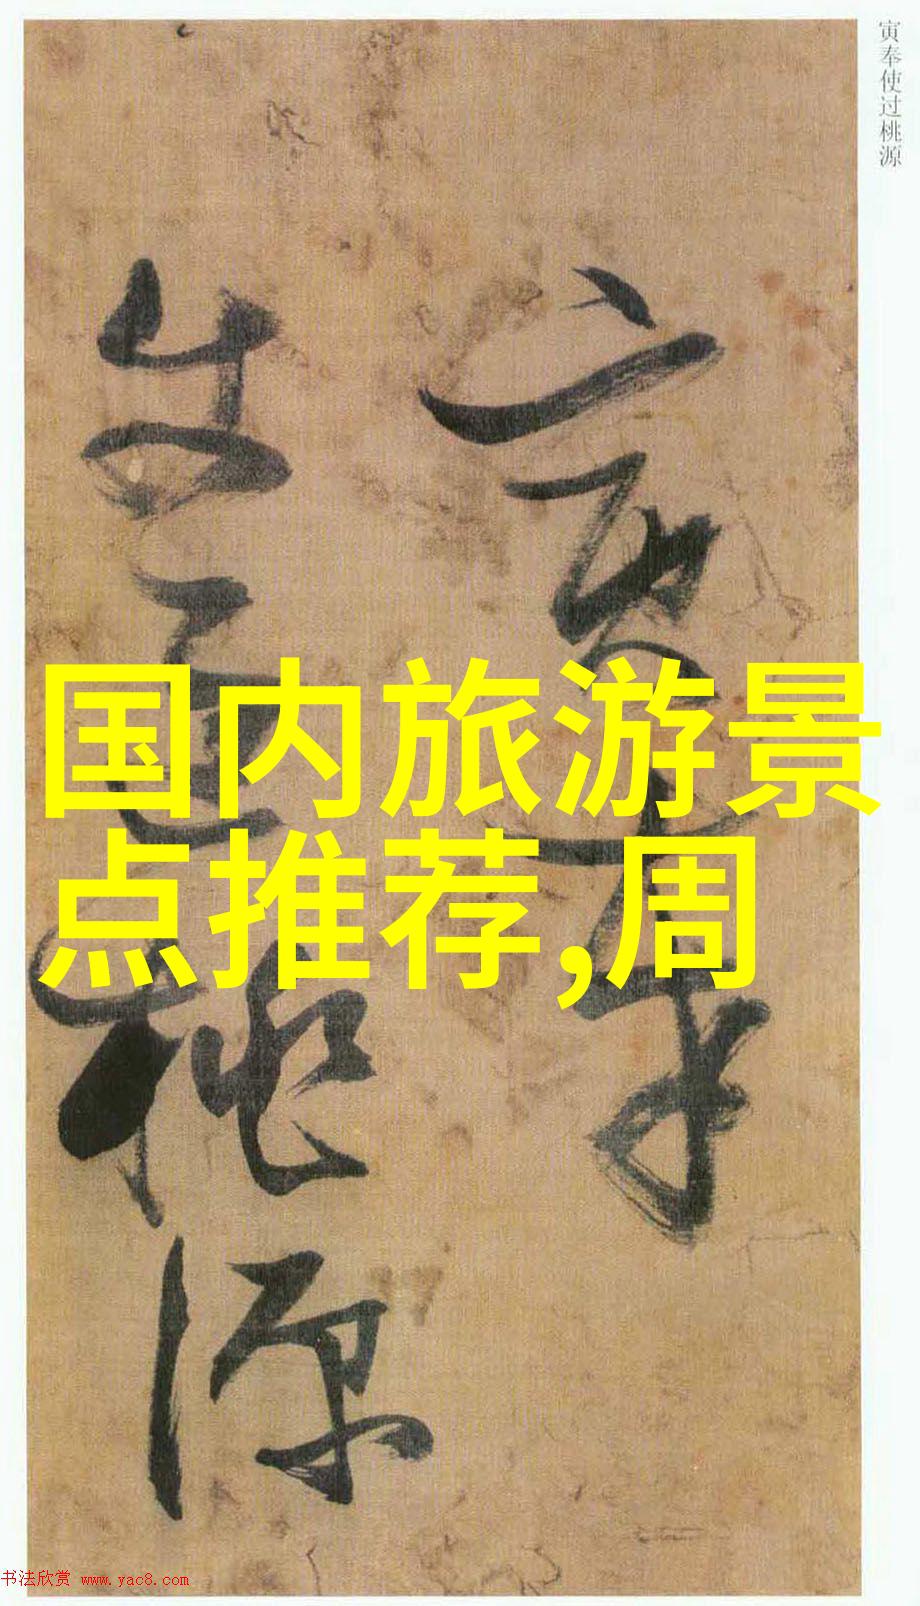 寅奉使过桃源
寅奉
使过桃源
国内旅游景
点推荐,周
书法欣赏 www.yac8.com